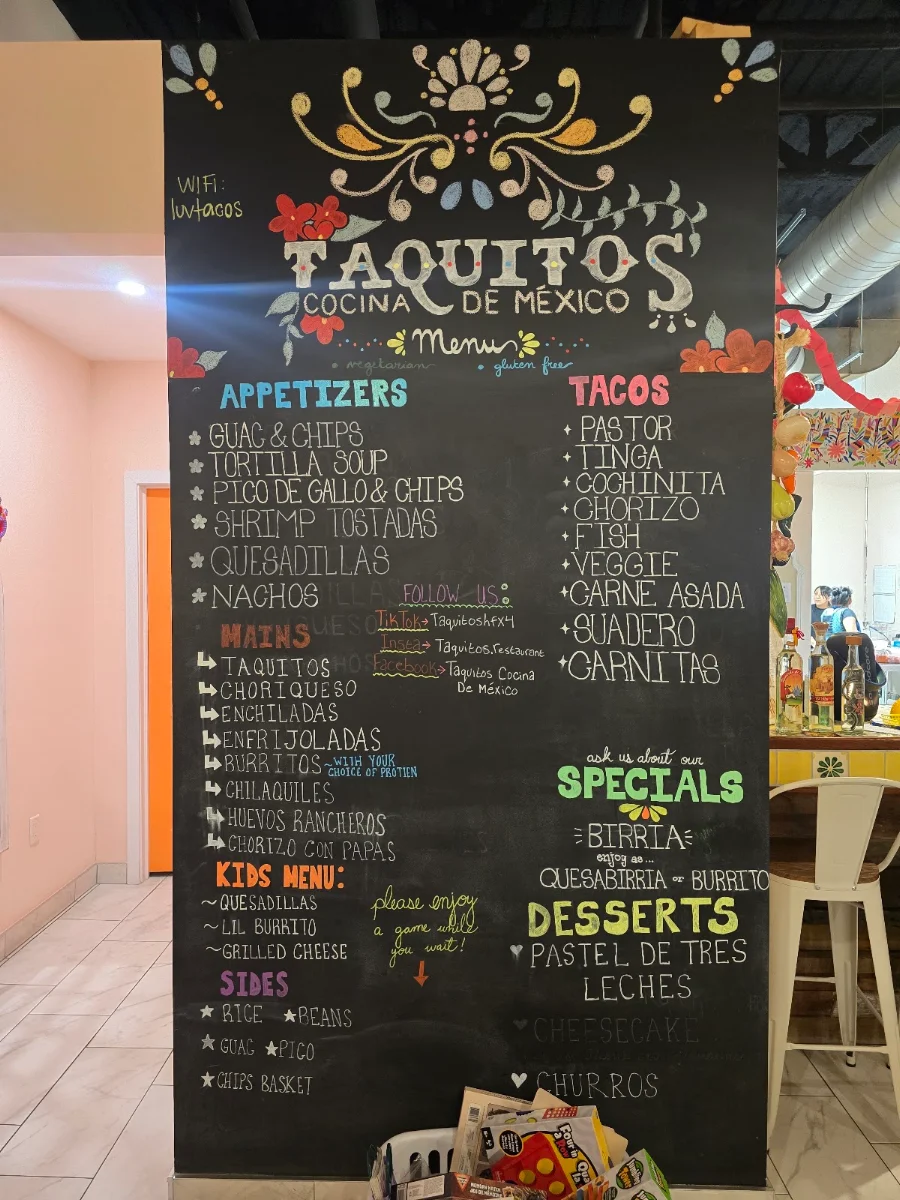 WIFI:
luvtacos
TAQUITOS
COCINA DE MÉXICO
Menu
• vegetarian • gluten free
APPETIZERS
GUAC & CHIPS
TORTILLA SOUP
PICO DE GALLO & CHIPS
SHRIMP TOSTADAS
QUESADILLAS
NACHOS
FOLLOW US:
TikTok → Taquitoshfx4
Insta → Taquitos.restaurant
Facebook → Taquitos Cocina
De México
MAINS
TAQUITOS
CHORIQUESO
ENCHILADAS
ENFRIJOLADAS
BURRITOS ~WITH YOUR
CHOICE OF PROTIEN
CHILAQUILES
HUEVOS RANCHEROS
CHORIZO CON PAPAS
KIDS MENU:
~QUESADILLAS
~LIL BURRITO
~GRILLED CHEESE
please enjoy
a game while
you wait!
SIDES
★ RICE ★ BEANS
★ GUAC ★ PICO
★ CHIPS BASKET
TACOS
PASTOR
TINGA
COCHINITA
CHORIZO
FISH
VEGGIE
CARNE ASADA
SUADERO
CARNITAS
ask us about our
SPECIALS
BIRRIA
enjoy as...
QUESABIRRIA or BURRITO
DESSERTS
♥ PASTEL DE TRES
LECHES
♥ CHEESECAKE
♥ CHURROS